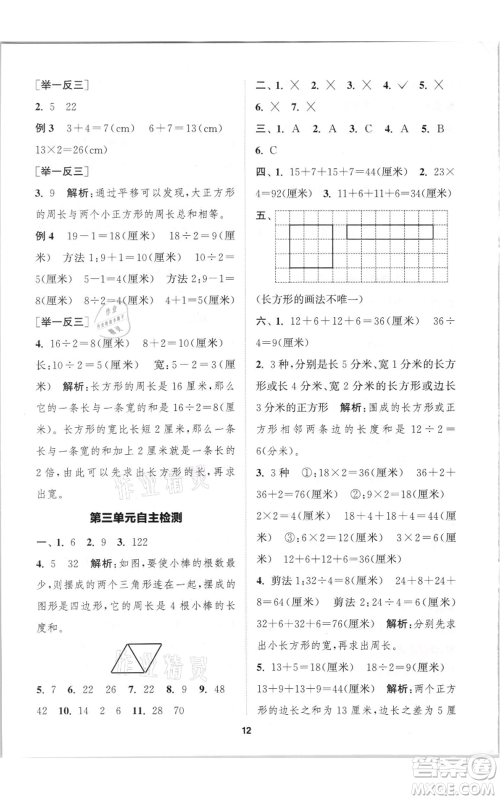 [举一反三]
2. 5　22
例 3　3＋4＝7(cm)　6＋7＝13(cm)
13×2＝26(cm)
[举一反三]
3. 9　解析:通过平移可以发现,大正方形
的周长与两个小正方形的周长总和相等。
例 4　19－1＝18(厘米)　18÷2＝9(厘
米)　方法 1:9＋1＝10(厘米)　10÷2＝
5(厘米)　5－1＝4(厘米)　方法 2:9－1＝
8(厘米)　8÷2＝4(厘米)　4＋1＝5(厘米)
[举一反三]
4. 16÷2＝8(厘米)　8＋2＝10(厘米)
长:10÷2＝5(厘米)　宽:5－2＝
3(厘米)　解析:长方形的周长是 16 厘米,那么
它的一条长与一条宽的和是 16÷2＝8(厘
米)。因为长方形的宽比长短 2 厘米,那么
它的一条宽的长度加上 2 厘米就等于一条
长的长度,因此可以先求出长方形的长,再
求出宽。
第三单元自主检测
一、1. 6　2. 9　3. 122
4. 5　32　解析:如图,要使小棒的根数最
少,则摆成的两个三角形有公共边,摆成的
图形是四边形,它的周长是 4 根小棒的长
度和。
5. 7　6. 30　7. 24　22　8. 22　9. 48
42　10. 14　2　6　28　70
二、1. ×　2. ×　3. ×　4. ✓　5. ×
6. ×　7. ×
三、1. A　2. A　3. C　4. A　5. B
6. C
四、1. 15＋7＋15＋7＝44(厘米)　2. 23×
4＝92(厘米)　3. 11＋6＋6＝23(厘米)
五、
(长方形的画法不唯一)
六、1. 12＋6＋12＋6＝36(厘米)　9×4＝
36(厘米)
2. 3 种,分别是长 5 分米、宽 1 分米的长方
形,长 4 分米、宽 2 分米的长方形和边长是
3 分米的正方形　解析:围成的长方形或正
方形相邻两条边长度的和是 12÷2＝
6(分米)。
3. 3 种　①:18×2＝36(厘米)　18＋18＋
36＋36＝108(厘米)　②:18×2＝36(厘
米)　36×4＝144(厘米)
4. 剪法 1:32－8＝24(厘米)　24＋24＋8＋
8＝64(厘米)　剪法 2:12÷2＝6(厘米)
32＋32＋6＋6＝76(厘米)　剪法 3:32÷
2＝16(厘米)　16＋16＋12＋12＝
56(厘米)　24－12＝12(厘米)　解析:分别先求
出小长方形的长和宽,再求周长。
5. 13＋5＝18(厘米)　18－5＝13(厘米)
13＋13＋5＋5＝36(厘米)　解析:大正方形
的边长与小正方形的边长之差是 5 厘
12